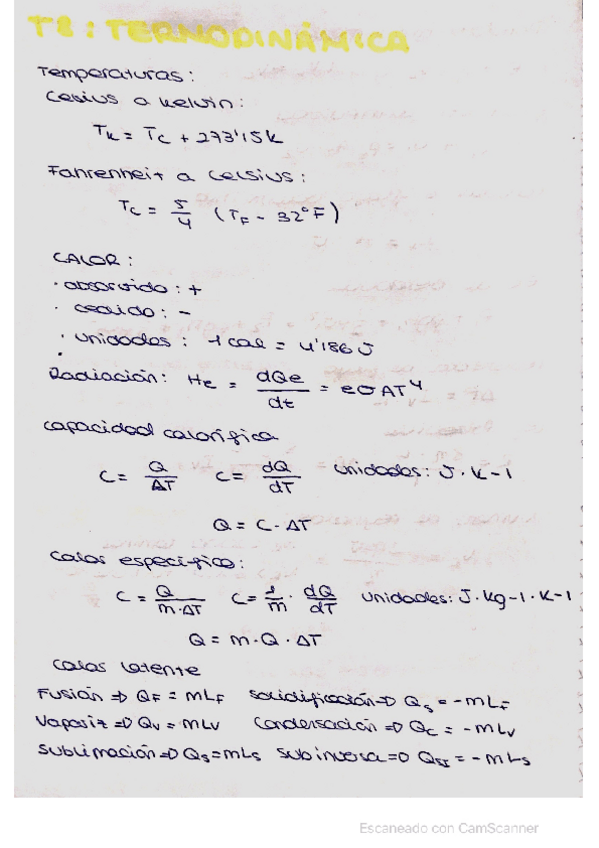 T8: TERMODINÁMICA
Temperaturas:
Celsius a Kelvin:
TK = TC + 273'15K
Fahrenheit a Celsius:
TC = 5/4 (TF - 32°F)
CALOR:
· absorvido: +
· cedido: -
· unidades: 1 cal = 4'186 J
Radiación: He = dQe/dt = eσAT⁴
capacidad calorífica
C = Q/ΔT C = dQ/dT unidades: J·K-1
Q = C·ΔT
Calor específico:
C = Q/m·ΔT C = 1/m · dQ/dT unidades: J·kg-1·K-1
Q = m·Q·ΔT
Calor latente
Fusión => QF = mLF solidificación => Qs = -mLF
Vaporiz => Qv = mLv Condensación => Qc = -mLv
Sublimación => Qs = mLs sub inversa => QSI = -mLs
Escaneado con CamScanner